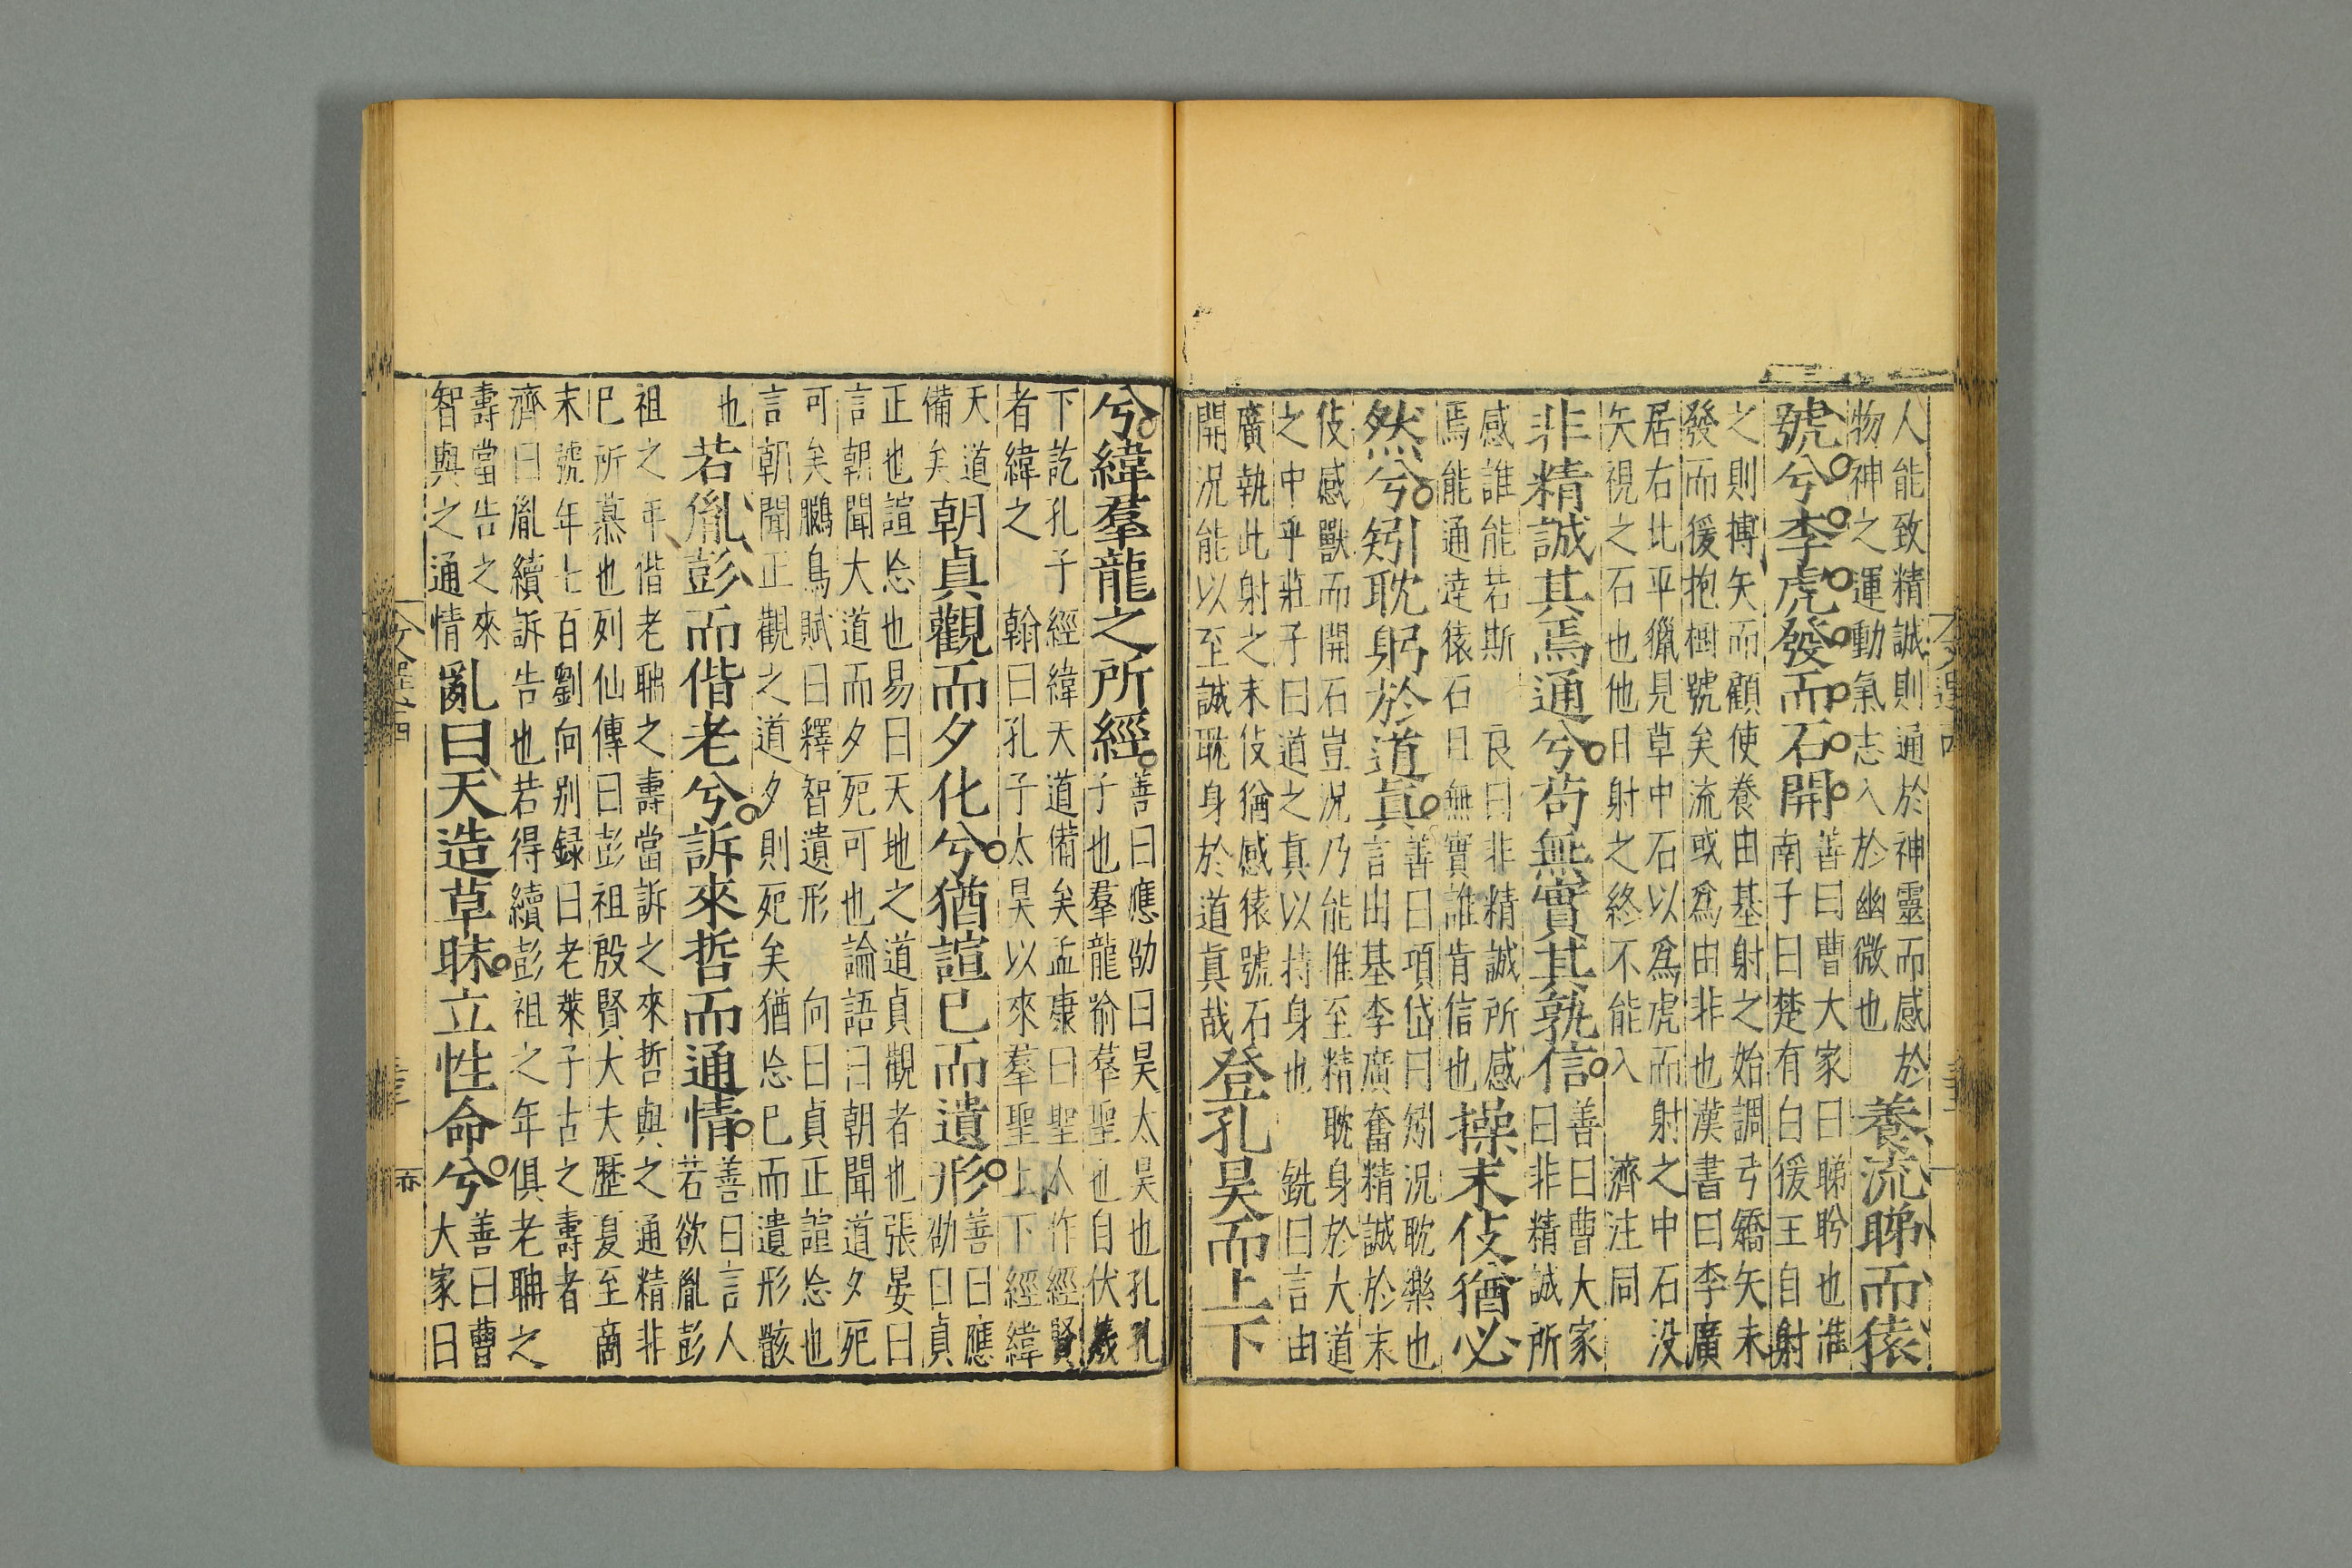 人能致精誠則通於神靈而感於
物神之運動氣志入於幽微也
養流睇而猿
號兮李虎發而石開
善曰曹大家曰睇眄也淮
南子曰楚有白猨王自射
之則搏矢而顧使養由基射之始調弓矯矢未
發而猨抱樹號矣流或爲由非也漢書曰李廣
居右北平獵見草中石以爲虎而射之中石没
矢視之石也他日射之終不能入 濟注同
非精誠其焉通兮苟無實其孰信
善曰曹大家
曰非精誠所
感誰能若斯 良曰非精誠所感
焉能通達猿石曰無實誰肯信也
操末伎猶必
然兮矧耽躬於道真
善曰項岱曰矧況耽樂也
言由基李廣奮精誠於末
伎感獸而開石豈況乃能惟至精耽身於大道
之中乎莊子曰道之真以持身也 銑曰言由
廣執此射之末伎猶感猿號石
開況能以至誠耽身於道真哉
登孔昊而上下
兮緯羣龍之所經
善曰應劭曰昊太昊也孔孔
子也羣龍喻羣聖也自伏羲
下訖孔子經緯天道備矣孟康曰聖人作經賢
者緯之 翰曰孔子太昊以來羣聖上下經緯
天道
備矣
朝貞觀而夕化兮猶諠已而遺形
善曰應
劭曰貞
正也諠忘也易曰天地之道貞觀者也張晏曰
言朝聞大道而夕死可也論語曰朝聞道夕死
可矣鵩鳥賦曰釋智遺形 向曰貞正諠忘也
言朝聞正觀之道夕則死矣猶忘已而遺形骸
也
若胤彭而偕老兮訴來哲而通情
善曰言人
若欲胤彭
祖之年偕老聃之壽當訴之來哲與之通精非
已所慕也列仙傳曰彭祖殷賢大夫歷夏至商
末號年七百劉向别録曰老萊子古之壽者
濟曰胤續訴告也若得續彭祖之年俱老聃之
壽當告之來
智與之通情
亂曰天造草昧立性命兮
善曰曹
大家曰